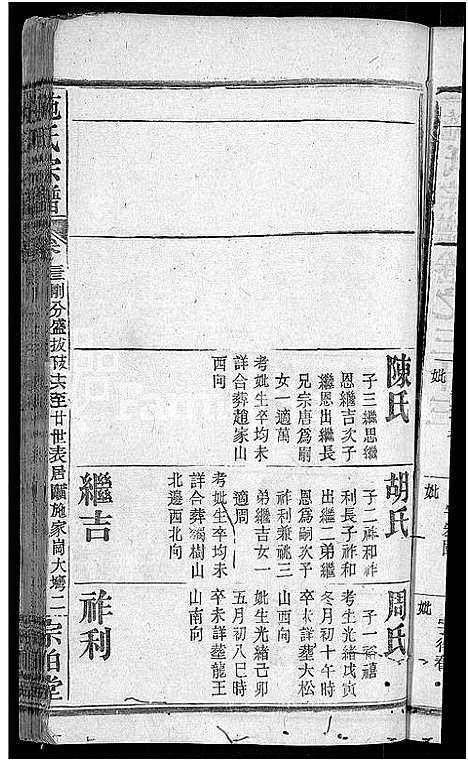 施氏宗譜
卷之三
剛分盛拔
公至廿世表居
施家崗大塆
二
宗伯堂
陳氏
子三繼思繼
恩繼吉次子
繼恩出繼長
兄宗唐為嗣
女一適萬
考妣生卒均未
詳合葬趙家山
西向
胡氏
子二祚和祚
利長子祚和
出繼二弟繼
恩為嗣次子
祚利兼祧三
弟繼吉女一
適周
考妣生卒均未
詳合葬樹山
北邊西北向
繼吉
周氏
子一裕禧
考生光緒戊寅
冬月初十午時
卒未詳葬大松
山西向
妣生光緒己卯
五月初八巳時
卒未詳葬龍王
山南向
祚利
妣
妣
妣